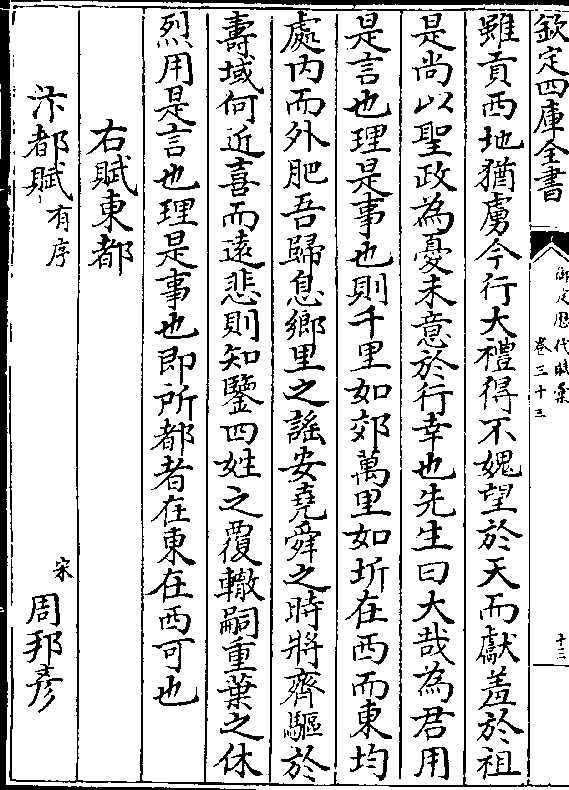 欽定四庫全書
御定歴代賦彙
卷三十三
十三
雖貢西地猶虜今行大禮得不媿望於天而獻羞於祖
是尚以聖政為憂未意於行幸也先生曰大哉為君用
是言也理是事也則千里如郊萬里如圻在西而東均
處内而外肥吾歸息鄉里之謠安堯舜之時將齊驅於
壽域何近喜而遠悲則知鑒四姓之覆轍嗣重葉之休
烈用是言也理是事也即所都者在東在西可也
右賦東都
汴都賦有序
宋
周邦彥